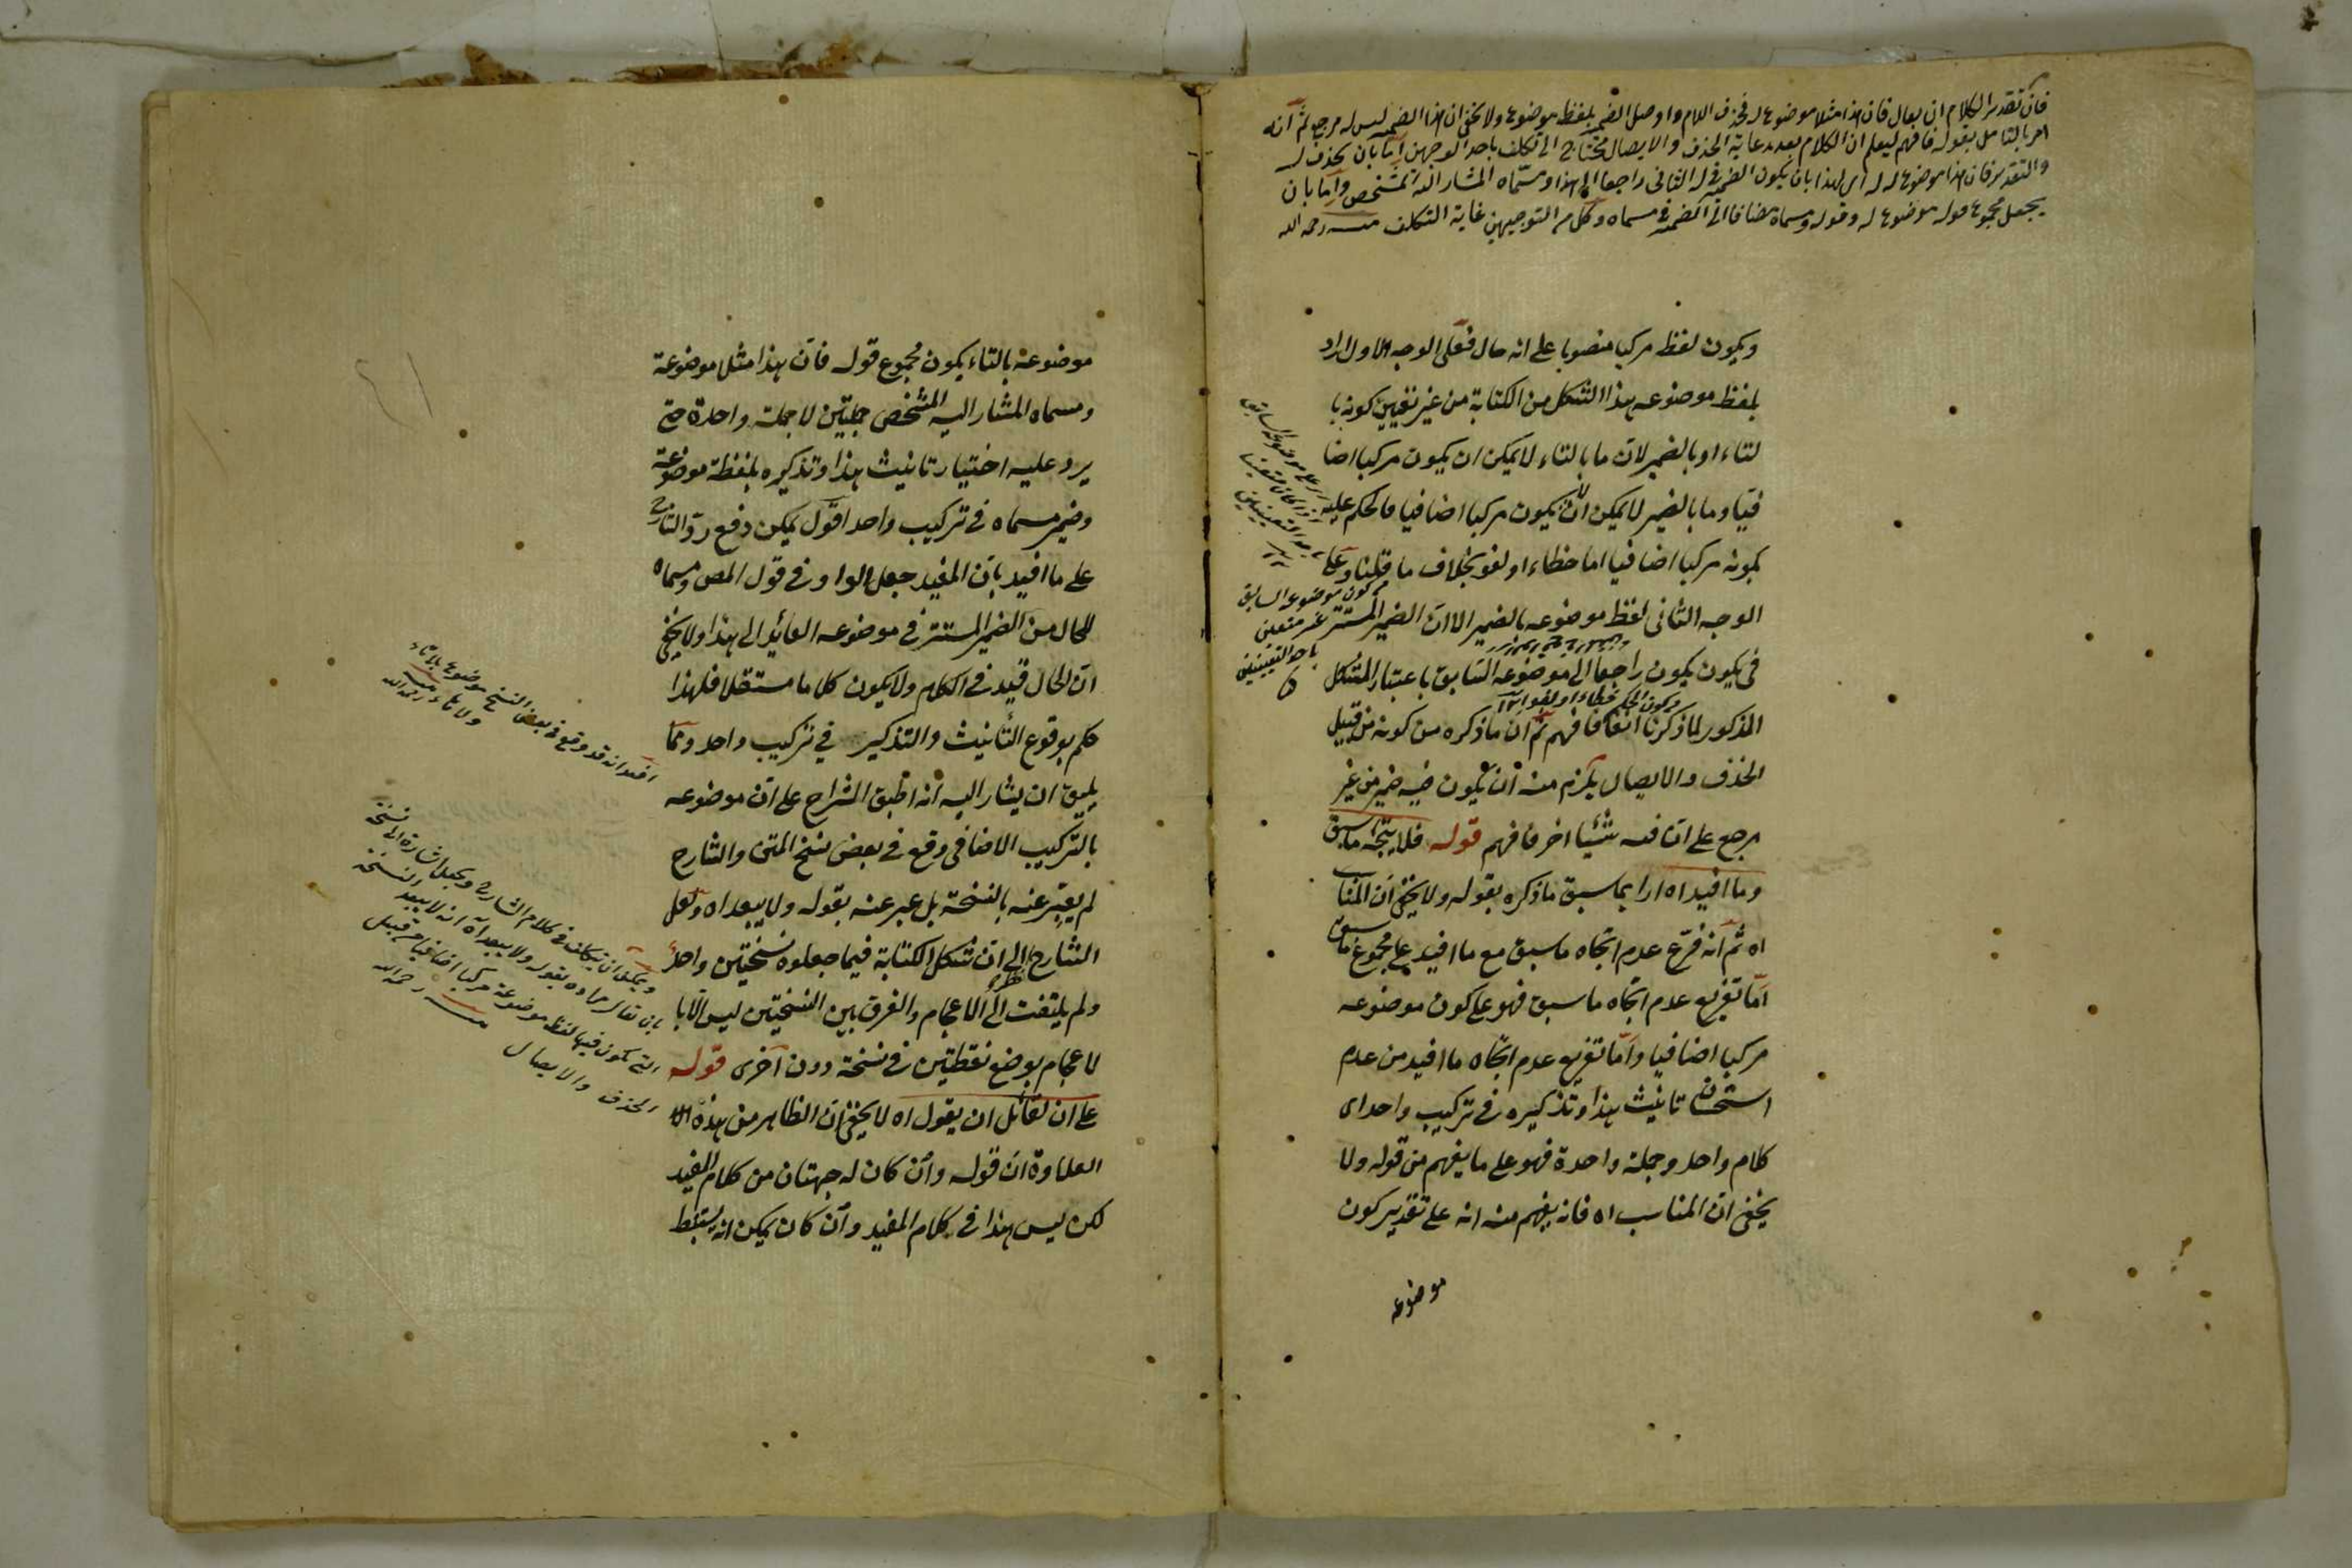 فان تقدير الكلام ان يقال فان هذا مثلا موضوع له فحذف اللام واوصل الضمير بلفظ موضوع ولا يخفى ان هذا الضمير ليس له مرجع ثم انه
امر بالتامل بقوله فافهم ليعلم ان الكلام بعد رعاية الحذف والايصال محتاج الى تكلف باحد الوجهين اما بان يحذف له
والتقدير فان هذا موضوع له له اى لهذا بان يكون الضمير فى له الثانى راجعا الى هذا ومسماه المشار اليه المشخص واما بان
يجعل مجموع قوله موضوع له وقوله ومسماه مضافا الى الضمير فى مسماه وكل من التوجيهين غاية التكلف منه رحمه الله
ويكون لفظ مركبا منصوبا على انه حال فعلى الوجه الاول اراد
بلفظ موضوعه هذا الشكل من الكتابة من غير تعيين كونه با
لتاء او بالضمير لان ما بالتاء لا يمكن ان يكون مركبا اضا
فيا وما بالضمير لا يمكن ان لا يكون مركبا اضافيا فالحكم عليه
بكونه مركبا اضافيا اما خطاء او لغو بخلاف ما قلنا وعلى
الوجه الثانى لفظ موضوعه بالضمير الا ان الضمير المستتر
فى يكون يكون راجعا الى موضوعه السابق باعتبار الشكل
المذكور لما ذكرنا انفا فافهم ثم ان ما ذكره من كونه من قبيل
الحذف والايصال يلزم منه ان يكون فيه ضمير من غير
مرجع على ان فيه شيئا اخر فافهم قوله فلا يتجه ما سبق
وما افيد اه اراد بما سبق ما ذكره بقوله ولا يخفى ان المناسب
اه ثم انه فرع عدم اتجاه ما سبق مع ما افيد على مجموع ما سبق
اما تفريع عدم اتجاه ما سبق فهو على كون موضوعه
مركبا اضافيا واما تفريع عدم اتجاه ما افيد من عدم
استحسان تانيث هذا وتذكيره فى تركيب واحد اى
كلام واحد وجملة واحدة فهو على ما يفهم من قوله ولا
يخفى ان المناسب اه فانه يفهم منه انه على تقدير كون
موضوعة
كون موضوعه السابق
غير متعين
باحد التعيينين
ويكون الحكم خطاء او لغوا
موضوعة بالتاء يكون مجموع قوله فان هذا مثلا موضوعة
ومسماه المشار اليه المشخص جملتين لا جملة واحدة حتى
يرد عليه اختيار تانيث هذا وتذكيره بلفظة موضوعة
وضمير مسماه فى تركيب واحد اقول يمكن دفع رد الشارح
على ما افيد بان المفيد جعل الواو فى قول المص ومسماه
للحال من الضمير المستتر فى موضوعه العائد الى هذا ولا يخفى
ان الحال قيد فى الكلام ولا يكون كلاما مستقلا فلهذا
حكم بوقوع التأنيث والتذكير فى تركيب واحد ومما
يليق ان يشار اليه انه اطبق الشراح على ان موضوعه
بالتركيب الاضافى وقع فى بعض نسخ المتن والشارح
لم يعبر عنه بالنسخة بل عبر عنه بقوله ولا يبعد اه ولعل
الشارح نظر الى ان شكل الكتابة فيما جعلوه نسختين واحد
ولم يلتفت الى الاعجام والفرق بين النسختين ليس الا با
لاعجام بوضع نقطتين فى نسخة دون اخرى قوله
على ان لقائل ان يقول اه لا يخفى ان الظاهر من هذه
العلاوة ان قوله وان كان له جهتان من كلام المفيد
لكن ليس هذا فى كلام المفيد وان كان يمكن انه يستنبط
انه قد وقع فى بعض النسخ موضوع بلا تاء
ولا هاء منه رحمه الله
ويمكن ان يتكلف فى كلام الشارح ويجعل اشارة الى نسخة
بان يقال مراده بقوله ولا يبعد اه انه لا يبعد النسخة
التى يكون فيها لفظ موضوعه مركبا اضافيا من قبيل
الحذف والايصال منه رحمه الله